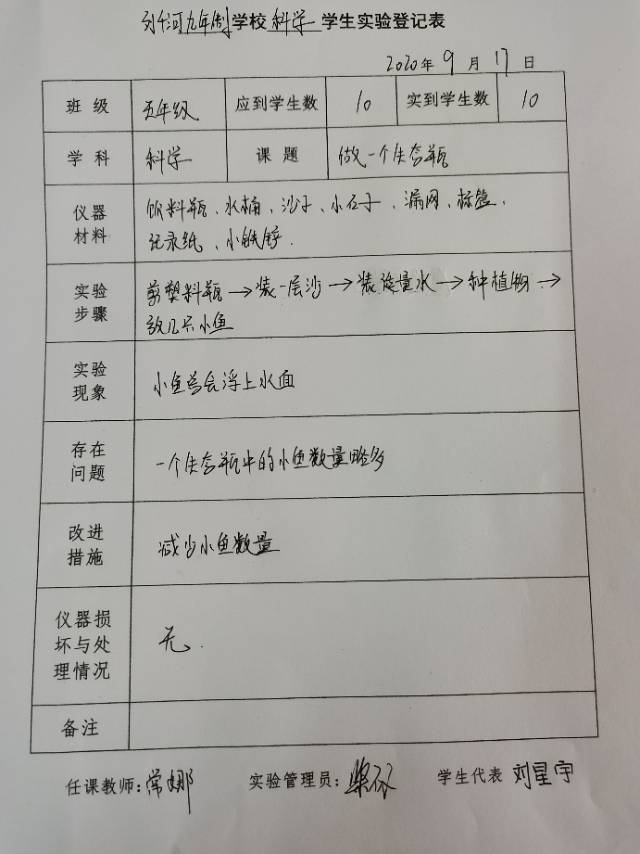 刘河九年制学校 科学 学生实验登记表
2020年 9 月 17 日
班 级 五年级 应到学生数 10 实到学生数 10
学 科 科学 课 题 做一个生态瓶
仪器
材料
饮料瓶、水桶、沙子、小石子、漏网、标签、
记录纸、小铁锌.
实验
步骤
剪塑料瓶→装一层沙→装适量水→种植物→
放几只小鱼
实验
现象
小鱼总会浮上水面
存在
问题
一个生态瓶中的小鱼数量略多
改进
措施
减少小鱼数量
仪器损
坏与处
理情况
无.
备注
任课教师:常娜 实验管理员: 学生代表 刘星宇